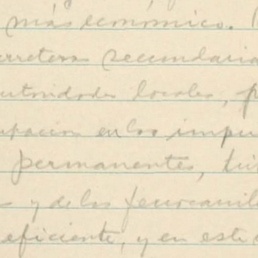 más económico.
carreteras secundarias
autoridades locales, p
upación en los impu
permanentes, tu
s y de los ferrocarril
eficiente, y en este